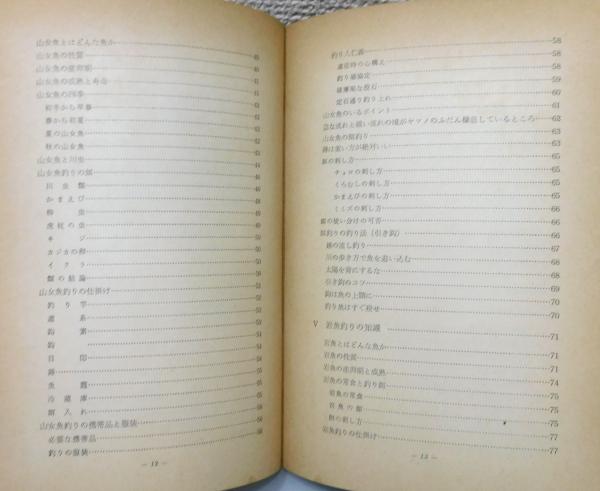 山女魚とはどんな魚か
山女魚の性質
山女魚の産卵期
山女魚の成熟と寿命
山女魚の四季
初冬から早春
春から初夏
夏の山女魚
秋の山女魚
山女魚と川虫
山女魚釣りの餌
川虫類
かまえび
柳虫
虎杖の虫
キジ
カジカの卵
イクラ
餌の結論
山女魚釣りの仕掛け
釣り竿
道糸
鈎素
鈎
目印
錘
魚籠
冷蔵庫
餌入れ
山女魚釣りの携帯品と服装
必要な携帯品
釣りの服装
— 12 —
釣り人仁義 58
遭遇時の心構え 58
釣り場協定 59
破廉恥な投石 60
定石通り釣り上れ 61
山女魚のいるポイント 61
急な流れと緩い流れの境がヤマメのふだん棲息しているところ 62
山女魚の餌釣り 63
錘は重い方が絶対いい 63
餌の刺し方 65
チョロの刺し方 65
くろむしの刺し方 65
かまえびの刺し方 65
ミミズの刺し方 66
錘の使い分けの可否 66
餌釣りの釣り法（引き鈎） 66
錘の流し釣り 67
川の歩き方で魚を追い込む 68
太陽を背にするな 68
引き鈎のコツ 69
鈎は魚の上顎に 70
釣り魚はすぐ殺せ 70
V 岩魚釣りの知識 71
岩魚とはどんな魚か 71
岩魚の性質
岩魚の産卵期と成熟 74
岩魚の常食と釣り餌 75
岩魚の常食 75
岩魚の餌 75
餌の刺し方 77
岩魚釣りの仕掛け 77
— 13 —